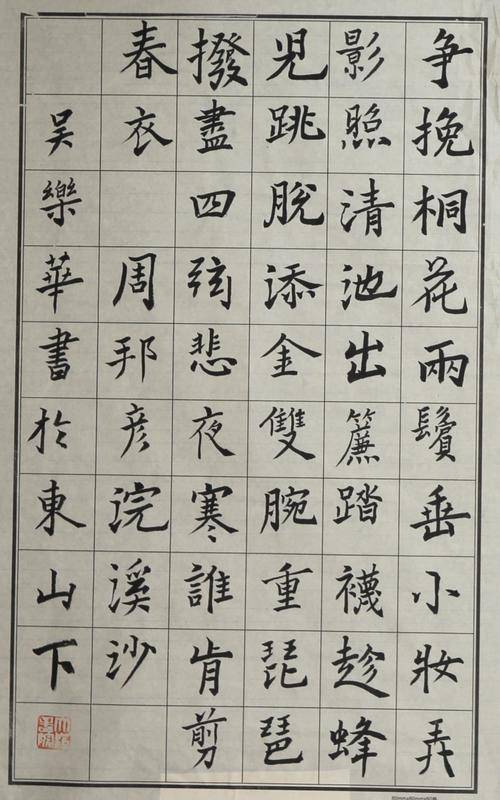 争挽桐花兩鬢垂小妝弄
影照清池出簾踏襪趁蜂
兒跳脫添金雙腕重琵琶
撥盡四弦悲夜寒誰肯剪
春衣 周邦彦浣溪沙
吴樂華書於東山下